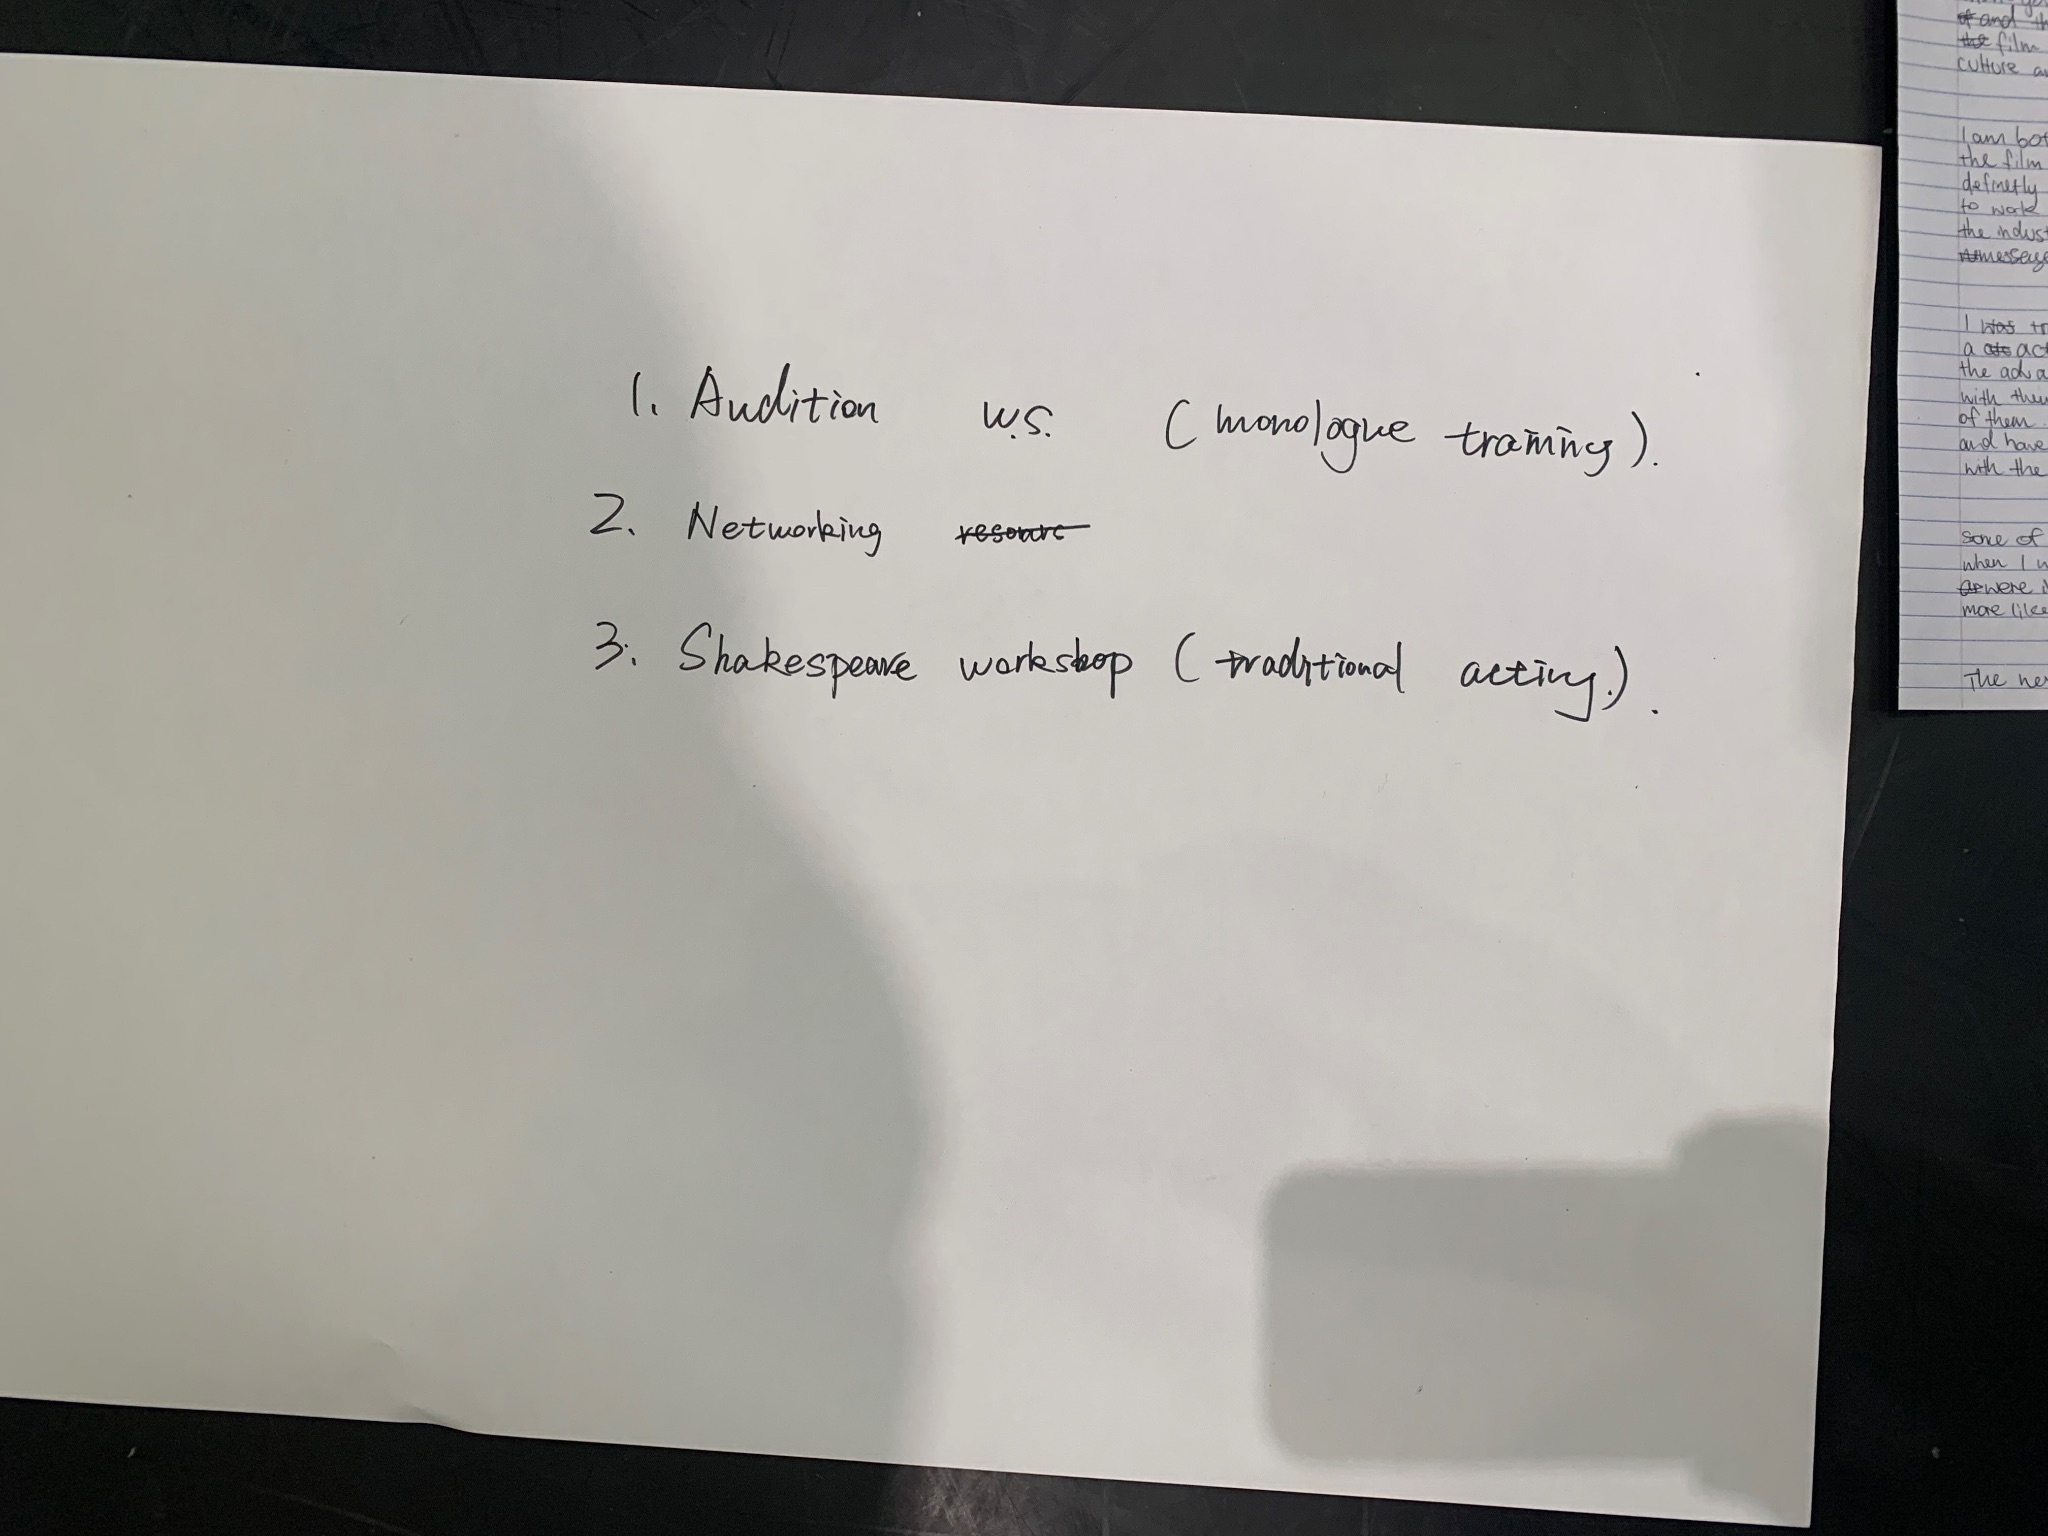 1. Audition w.s. (monologue training).
2. Networking resourc
3. Shakespeare workshop (traditional acting).
and th
film
culture a
I am bot
the film
definetly
to work
the indust
messeage
I was tr
a act
the adva
with them
of them.
and have
with the
some of
when I w
were i
more like
The ne